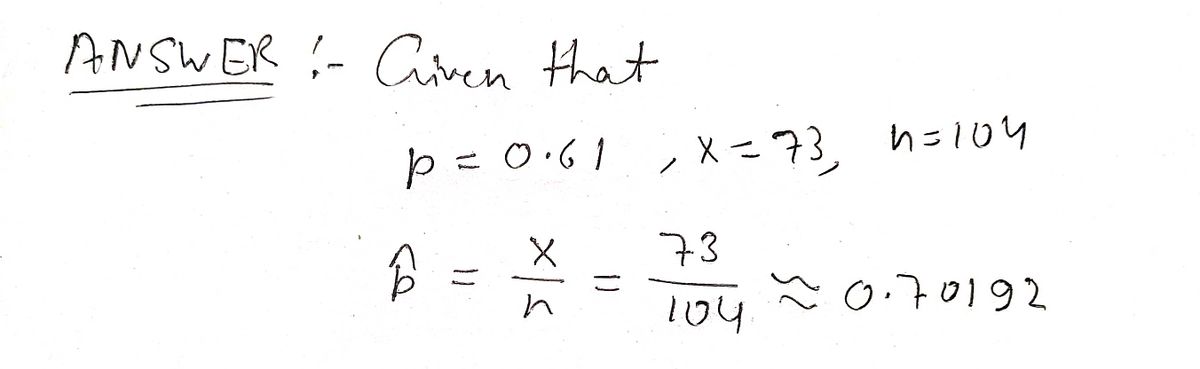 ANSWER :- Given that
p = 0.61 , X = 73, n = 104
p̂ = X/n = 73/104 ≈ 0.70192